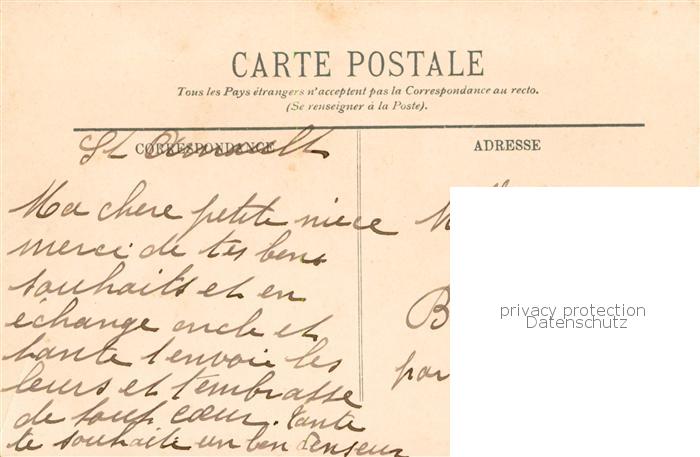 CARTE POSTALE
Tous les Pays étrangers n'acceptent pas la Correspondance au recto.
(Se renseigner à la Poste).
CORRESPONDANCE
ADRESSE
St Arnault
Ma chere petite niece
merci de tes bons
souhaits et en
échange oncle et
tante t'envoie les
leurs et t'embrasse
de tout cœur. tante
te souhaite un bon
M
B
par
privacy protection
Datenschutz